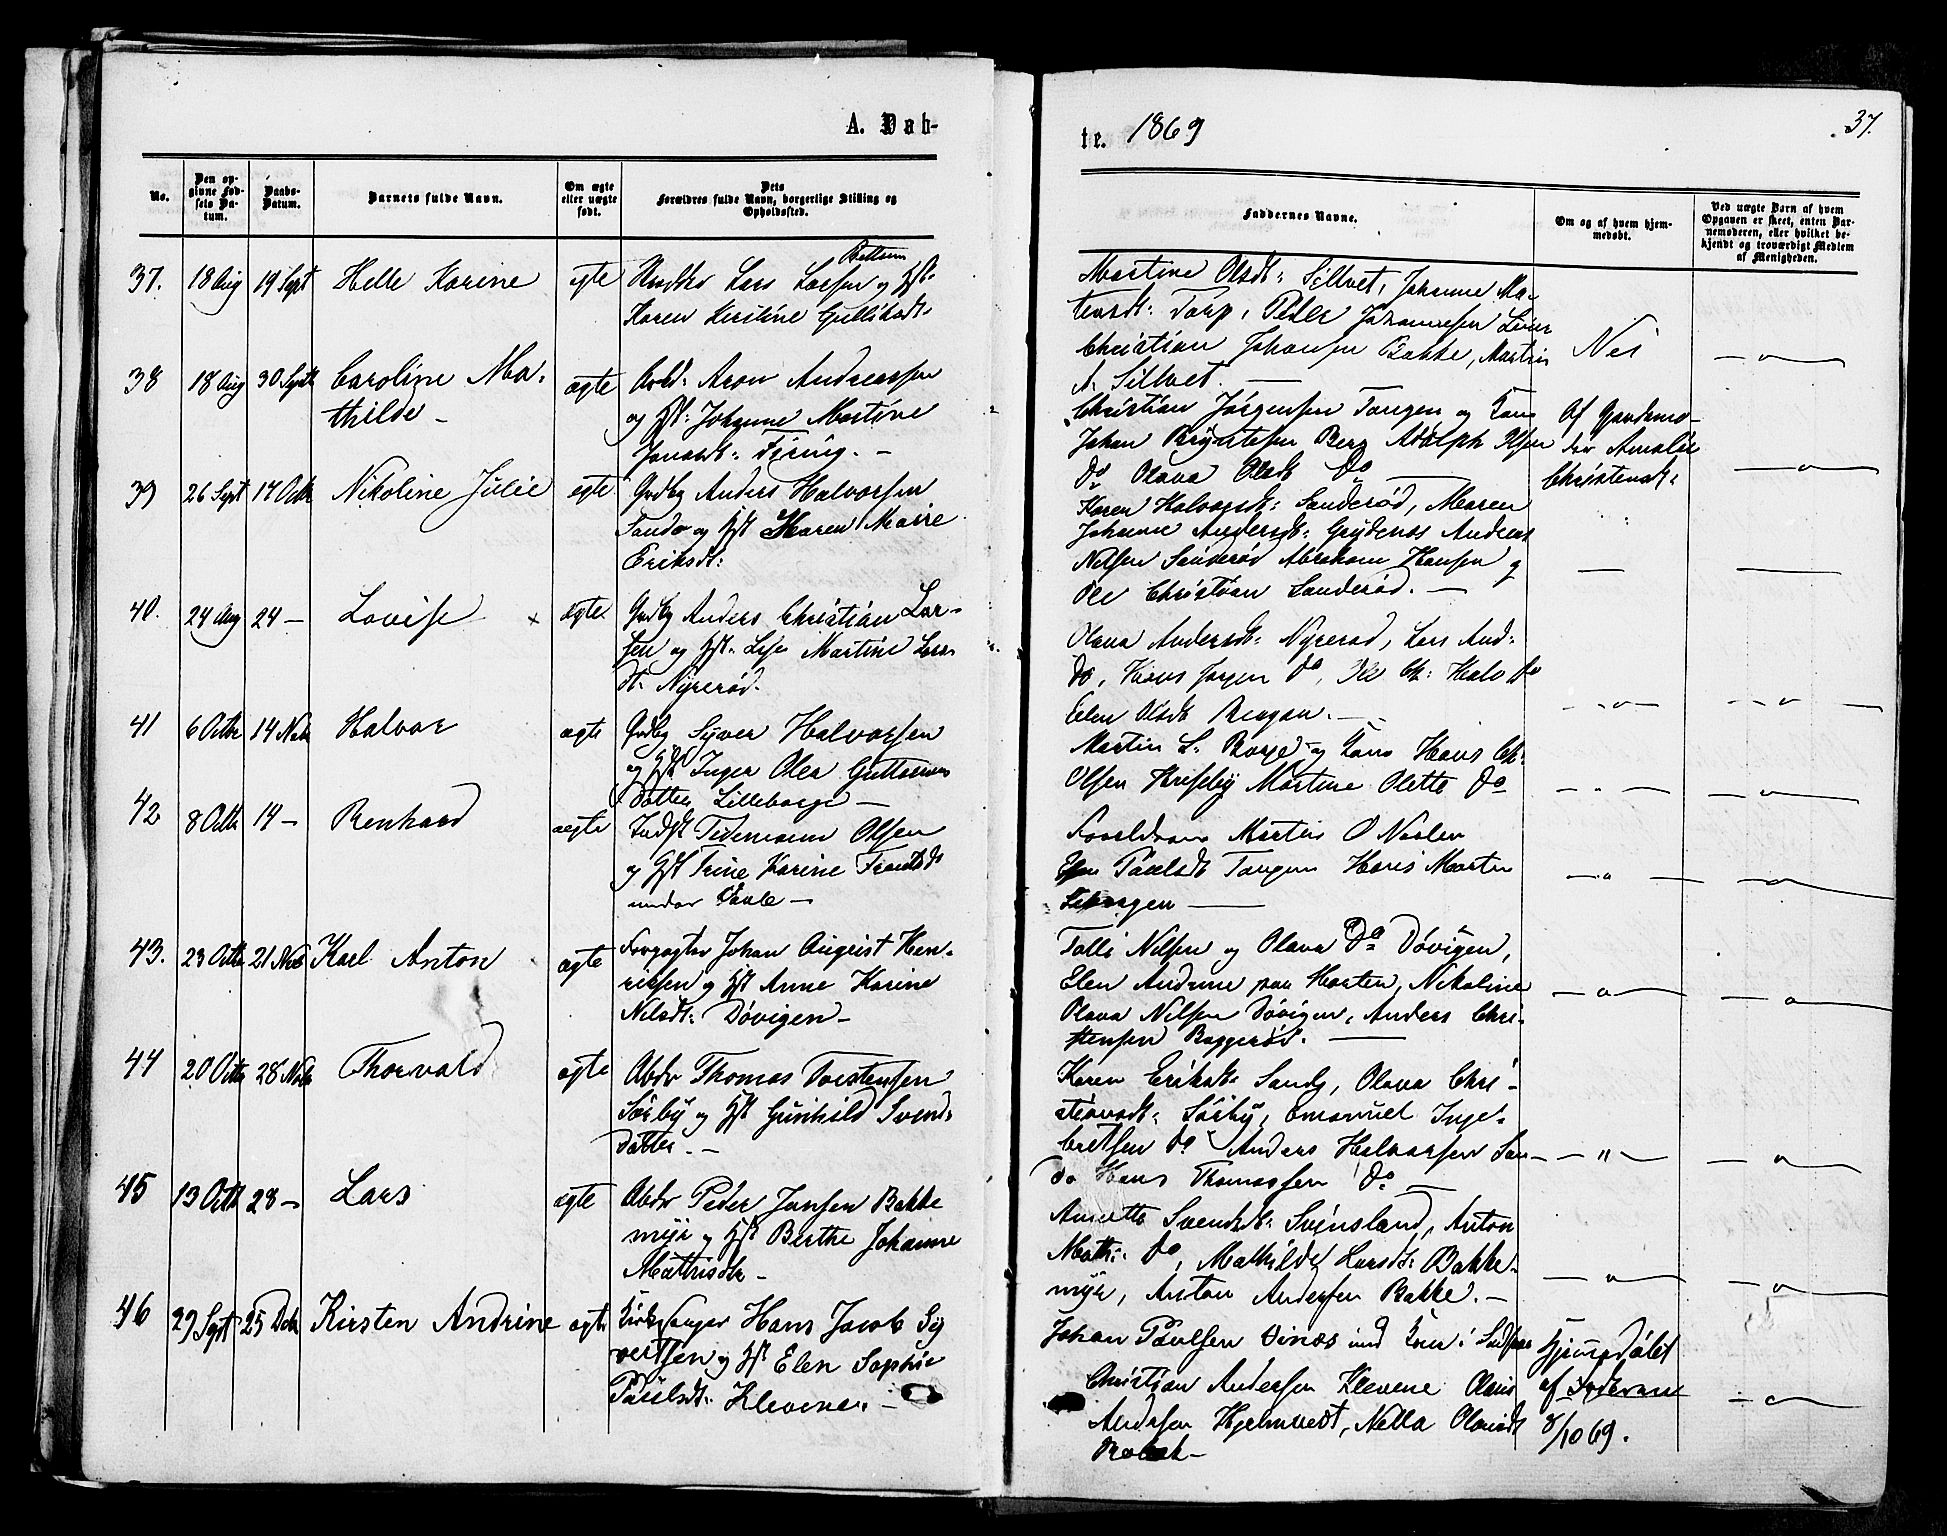 A. Dab-
No.
Den op-
givne Fød-
sels Da-
tum.
Daabs-
Datum.
Barnets fulde Navn.
Om ægte
eller uægte
født.
Dets
Forældres fulde Navn, borgerlige Stilling og
Opholdssted.
37. 18 Aug 19 Sept Helle Karine egte Lars Larsen og Hst:
Karen Kirstine Gulliksdt:
38 18 Aug 30 Septb Caroline Ma-
thilde - ægte Arbd: Aron Anderssen
og Hst: Johanne Martine
Jonasdt: -
39 26 Sept 17 Octb Nikoline Julie egte Grdbg Anders Halvorsen
Sando og Hst Karen Marie
Eriksdt:
40. 24 Aug 24 - Lovise x ægte Grdbg Anders Christian Lar-
sen og Hst. Lise Martine Lars-
dt. Nyrerød.
41 6 Octbr 14 Novb Halvor ægte Grdbg Syver Halvorsen
og Hst Inger Olea Guttorms
Datter Lilleborge -
42 8 Octb 14 - Renhard aegte Indst Tidemann Olsen
og Hst Trine Karine Frantsdt
under -
43. 23 Octb 21 Nov Karl Anton ægte Forpagter Johan August Hen-
riksen og Hst Anne Karine
Nilsdt: Døvigen -
44 20 Octb 28 Novb Thorvald ægte Arbdr Thomas Torstensen
Sørby og Hst Gunhild Svends
Datter. -
45 13 Octb 28 - Lars ægte Arbdr Peder Jensen Bakke
myr og Hst Berthe Johanne
Mathisdtr -
46 29 Sept 25 Decb Kirsten Andrine ægte Kirkesanger Hans Jacob Sy
vertsen og Hst Elen Sophie
Paulsdt: Klevene. -
te. 1869
37.
Faddernes Navne.
Om og af hvem hjem-
medøbt.
Ved uægte Barn af hvem
Opgaven er skeet, enten Bar-
nemoderen, eller hvilket be-
kjendt og troværdigt Medlem
af Menigheden.
Martine Olsdt: Sillvet, Johanne Ma-
Torp, Peder Johannesen
Christian Johansen Bakke, Martin Nei
A. Sillvet. -
Christian Jørgensen Tangen og Kone Af
Johan Berg Adolph Olsen Amalie
Do Olava Olsdt Do Christensdt:
Karen Halvorsdt: Sanderød, Maren
Johanne Andersdt: Andreas
Nilsen Sanderød Abraham Hansen og
Ole Christian Sanderød. -
Olava Andersdt: Nyrerød, Lars And:
Do, Hans Jørgen Do, Ole Ch: Halv Do
Elen Olsdt. -
Martin L. Borge og Kone Hans Ch:
Olsen Martine Olette Do
Forældrene Martin O
Paulsdt Tangen Hans Martin
-
Nilsen og Olava Do Døvigen,
Elen Andrine paa Horten, Nikoline
Olava Nilsen Døvigen, Anders Chri-
stensen Baggerød. -
Karen Eriksdt: Sando, Olava Chri-
stiansdt: Sørby, Emanuel Inge-
bretsen Do Anders Halvorsen San-
do Hans Thomassen Do -
Annette Svendsdt: Svinsland, Anton
Math: Do, Mathilde Larsdt: Bakke-
myr, Anton Andersen Bakke. -
Johan Paulsen Vinæs med Kone Hjemmedøbt
Christian Andersen Klevene Olaus af
Andersen Hjelmtvedt, Nella Olausdt 8/10 69.